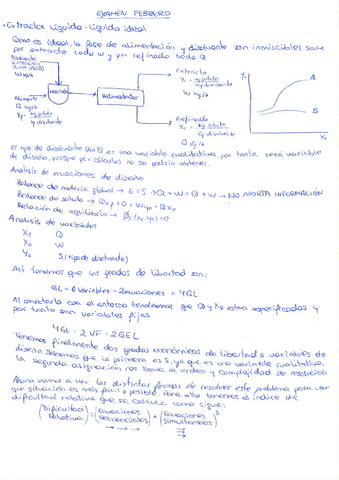 EXAMEN FEBRERO
• Extractor Líquido-Líquido ideal
Como es ideal, la fase de alimentación y disolvente son inmiscibles sale
por extracto todo W y por refinado todo Q
Disolvente
W kg/h
Alimento
Q kg/h
mezclador
sedimentador
Extracto
kg soluto
kg disolvente
W kg/h
Refinado
kg soluto
Q kg/h
A
B
El tipo de disolvente (A o B) es una variable cualitativa, por tanto, será variable
de diseño, porque por cálculos no se podría obtener.
Análisis de ecuaciones de diseño
Balance de materia global → E = S → Q + W = Q + W → NO APORTA INFORMACIÓN
Balance de soluto →
Relación de equilibrio →
Análisis de variables
Q
W
S (tipo de disolvente)
Así tenemos que los grados de libertad son:
GL = 6 variables - 2 ecuaciones = 4GL
Al conectarla con el entorno tendremos que Q y XF están especificadas y
por tanto son variables fijas
4GL - 2VF = 2GEL
Tenemos finalmente dos grados económicos de libertad o variables de
diseño. Sabemos que la primera es S, ya que es una variable cualitativa,
la segunda asignación nos lleva al orden y complejidad de resolución
Ahora vamos a ver las distintas formas de resolver este problema para ver
que situación es más fácil o posible. Para ello tenemos el índice de
dificultad relativa que se calcula como sigue:
(Dificultad relativa) = (Ecuaciones secuenciales) + (Ecuaciones simultáneas)³